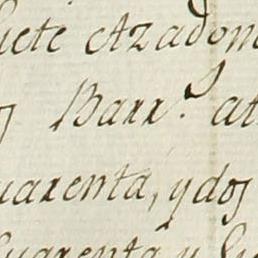 siete Azadon
Barr.s at
uarenta, y dos
Quarenta y